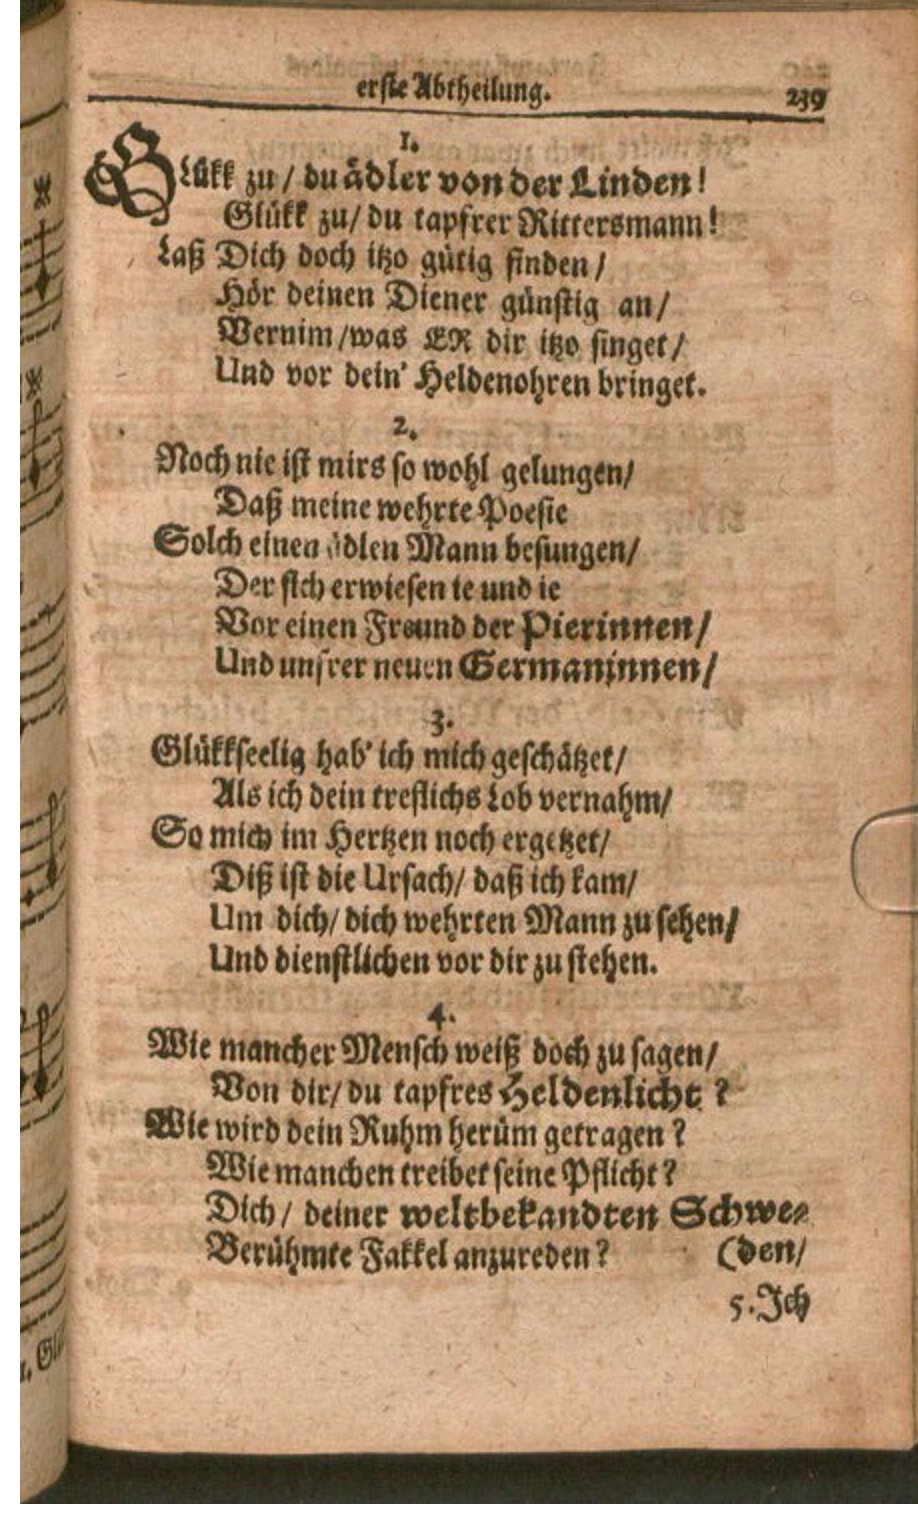 erste Abtheilung. 239
1.
GLükk zu / du ädler von der Linden!
Glükk zu/ du tapfrer Rittersmann!
Laß Dich doch itzo gütig finden /
Hör deinen Diener günstig an /
Vernim /was ER dir itzo singet /
Und vor dein' Heldenohren bringet.
2.
Noch nie ist mirs so wohl gelungen/
Daß meine wehrte Poesie
Solch einen ädlen Mann besungen/
Der sich erwiesen ie und ie
Vor einen Freund der Pierinnen/
Und unsrer neuen Germaninnen/
3.
Glükkseelig hab' ich mich geschätzet/
Als ich dein treflichs Lob vernahm/
So mich im Hertzen noch ergetzet/
Diß ist die Ursach/ daß ich kam/
Um dich/ dich wehrten Mann zu sehen/
Und dienstlichen vor dir zu stehen.
4.
Wie mancher Mensch weiß doch zu sagen/
Von dir/ du tapfres Heldenlicht?
Wie wird dein Ruhm herüm getragen?
Wie manchen treibet seine Pflicht?
Dich/ deiner weltbekandten Schwe-
Berühmte Fakkel anzureden? (den/
5. Ich